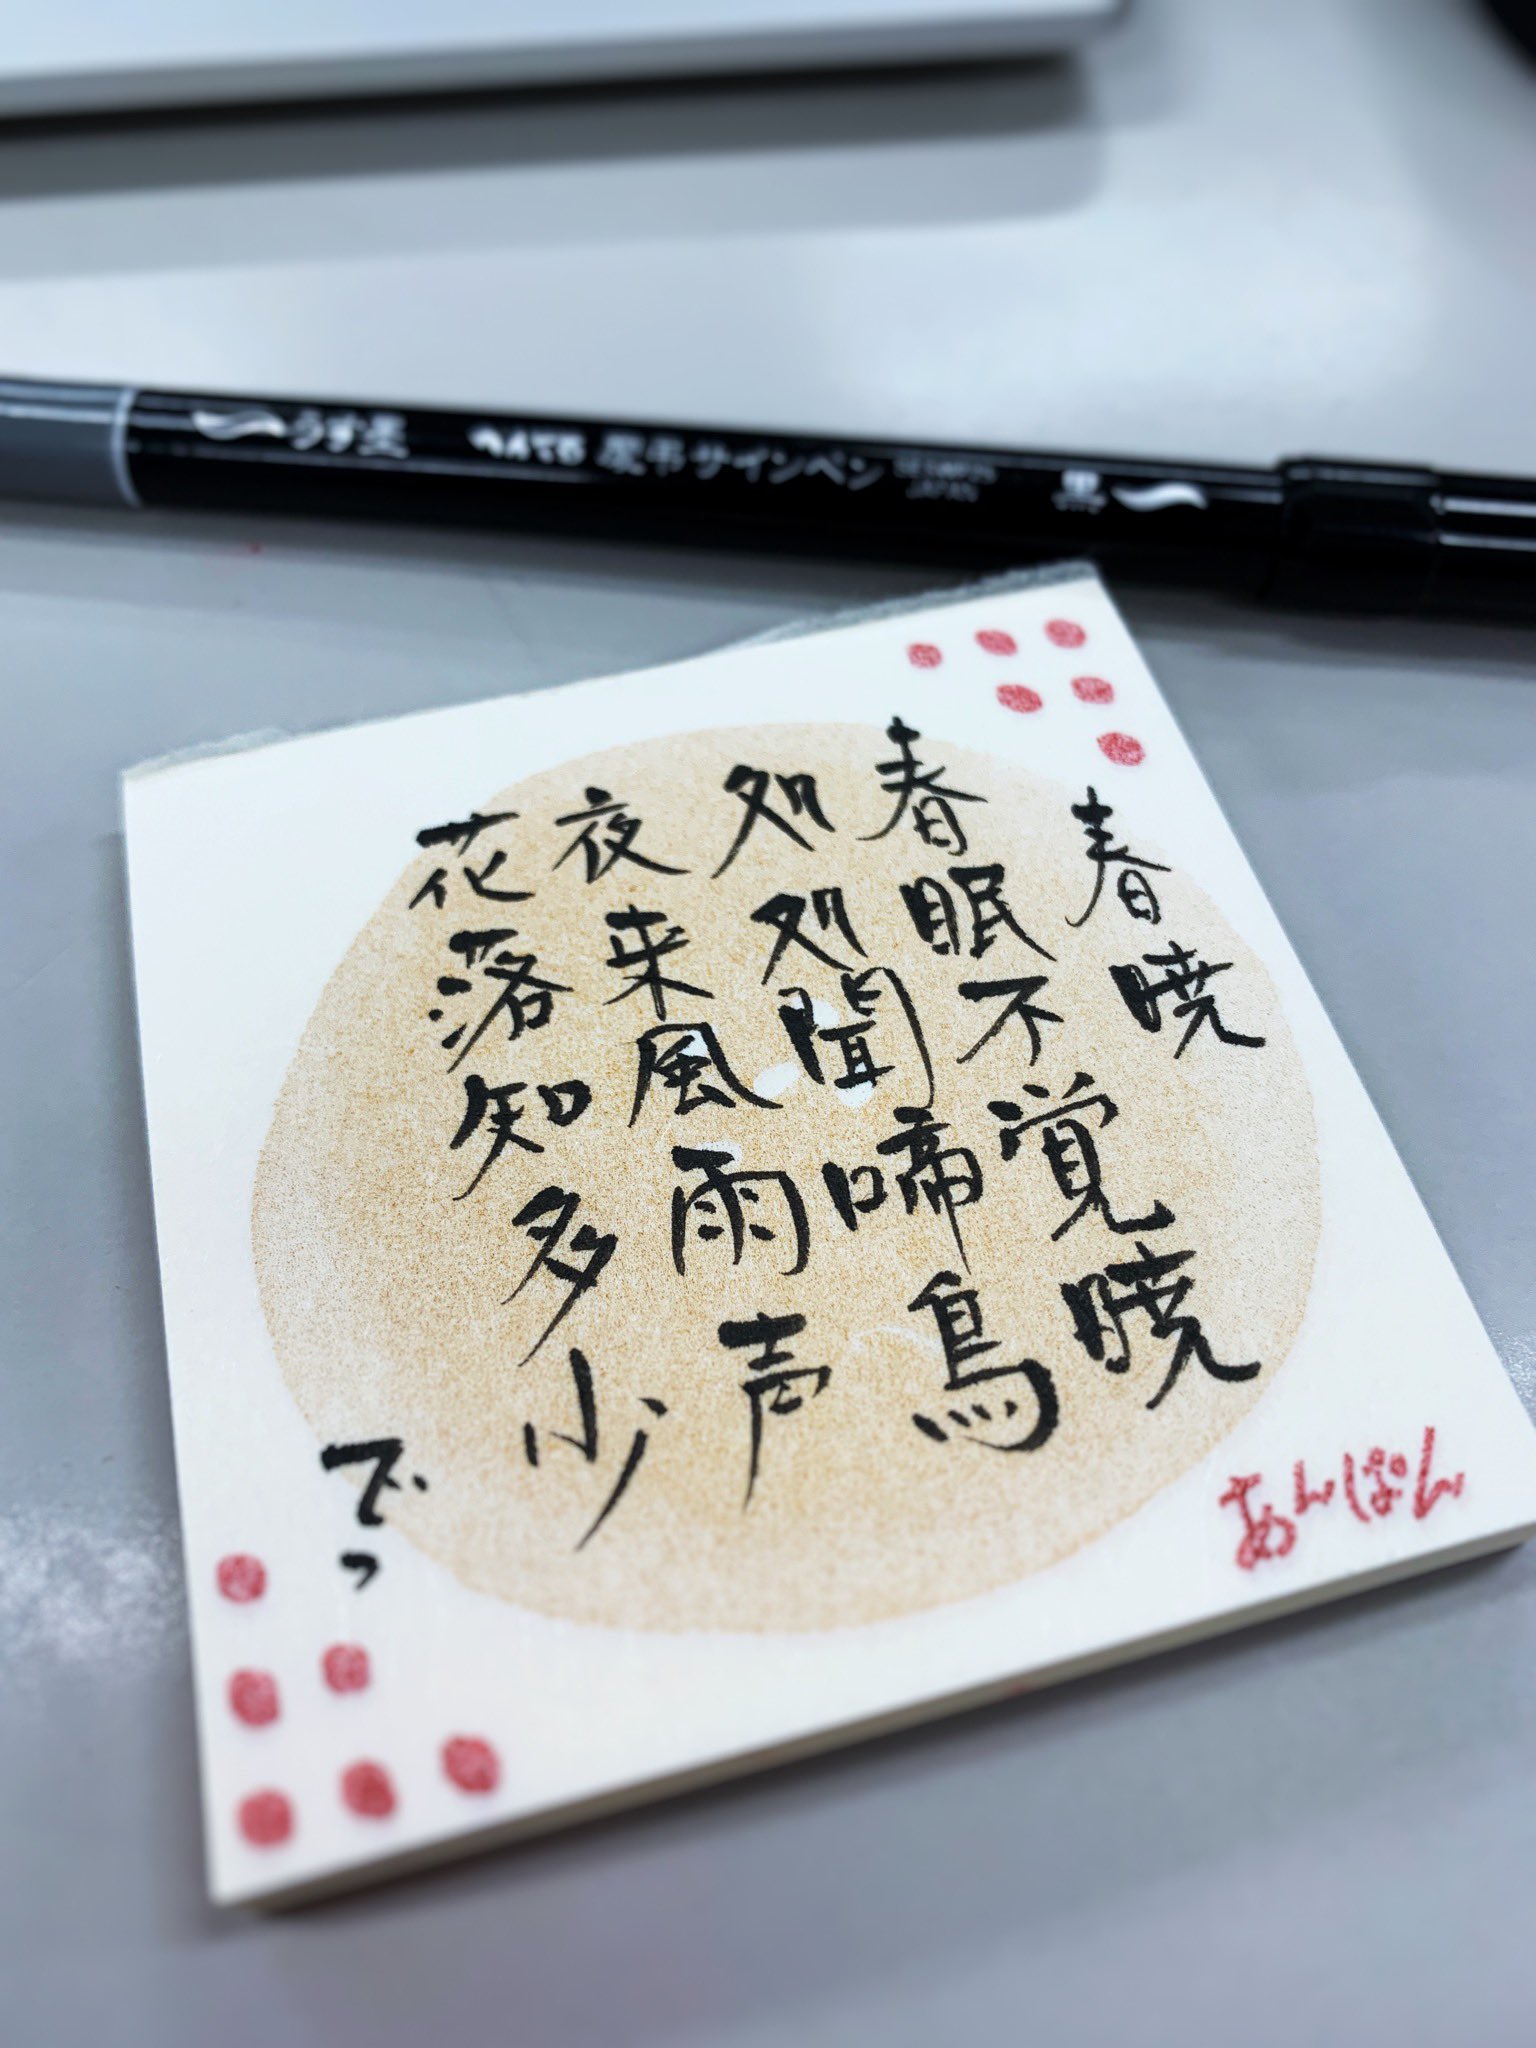 うす墨
慶弔サインペン
JAPAN
黒
春暁
春眠不覚暁
処処聞啼鳥
夜来風雨声
花落知多少
でっ
あんぱん